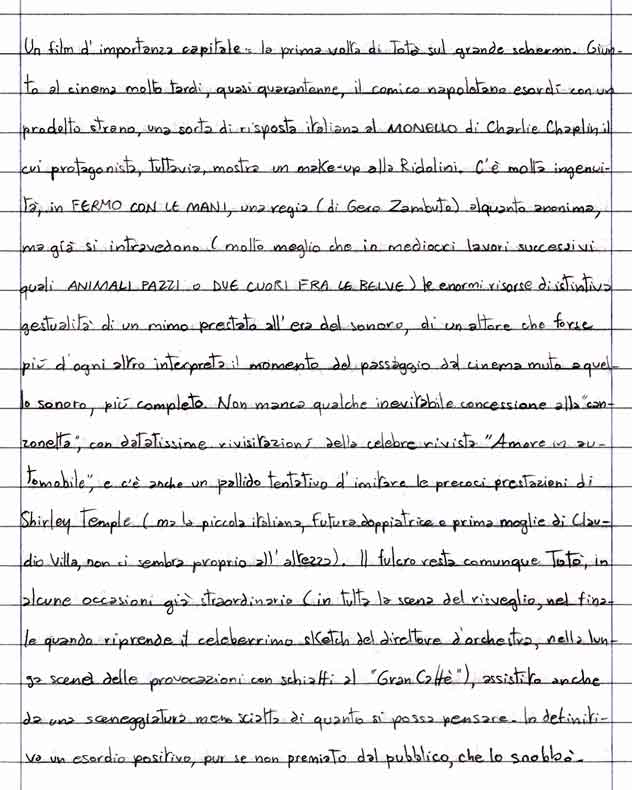 Un film d'importanza capitale: la prima volta di Totò sul grande schermo. Giun-
to al cinema molto tardi, quasi quarantenne, il comico napoletano esordì con un
prodotto strano, una sorta di risposta italiana al MONELLO di Charlie Chaplin il
cui protagonista, tuttavia, mostra un make-up alla Ridolini. C'è molta ingenui-
tà, in FERMO CON LE MANI, una regia (di Gero Zambuto) alquanto anonima,
ma già si intravedono (molto meglio che in mediocri lavori successivi
quali ANIMALI PAZZI o DUE CUORI FRA LE BELVE) le enormi risorse di istintiva
gestualità di un mimo prestato all'era del sonoro, di un attore che forse
più d'ogni altro interpreta il momento del passaggio dal cinema muto a quel-
lo sonoro, più completo. Non manca qualche inevitabile concessione alla "can-
zonetta", con datatissime rivisitazioni della celebre rivista "Amore in au-
tomobile", e c'è anche un pallido tentativo d'imitare le precoci prestazioni di
Shirley Temple (ma la piccola italiana, futura doppiatrice e prima moglie di Clau-
dio Villa, non ci sembra proprio all'altezza). Il fulcro resta comunque Totò, in
alcune occasioni già straordinario (in tutta la scena del risveglio, nel fina-
le quando riprende il celeberrimo sketch del direttore d'orchestra, nella lun-
ga scena delle provocazioni con schiaffi al "Gran Caffè"), assistito anche
da una sceneggiatura meno sciatta di quanto si possa pensare. In definiti-
va un esordio positivo, pur se non premiato dal pubblico, che lo snobbò.